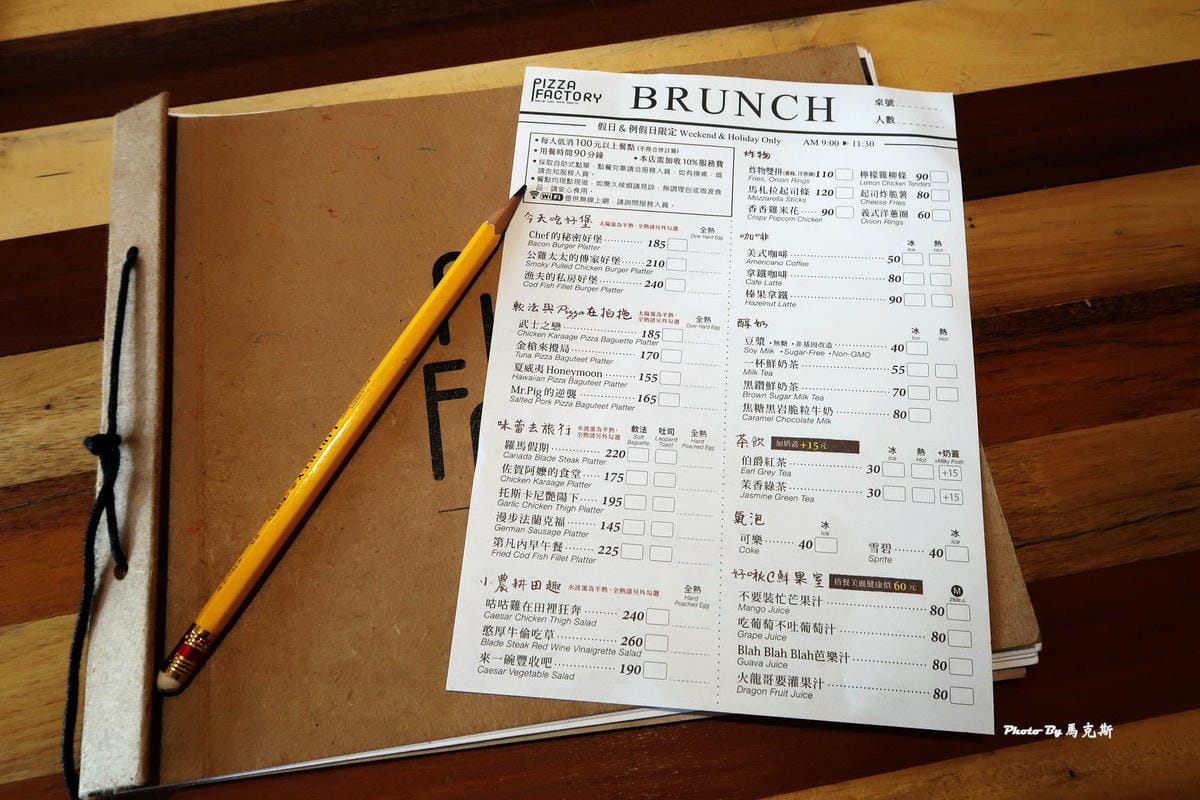 PIZZA
FACTORY
BRUNCH
桌號
人數
假日 & 例假日限定 Weekend & Holiday Only AM 9:00 ▶ 11:30
• 每人低消100元以上餐點 (不得合併計算)
• 用餐時間90分鐘 • 本店需加收10%服務費
• 採取自助式點單，點餐完畢請洽服務人員，如有換桌，煩
請告知服務人員。
• 餐點均現點現做，如需久候煩請見諒，無調理包或微波食
品，請安心食用。
WiFi 提供無線上網，請詢問服務人員。
今天吃好堡 太陽蛋為半熟，全熟請另外勾選 全熟
Over Hard Egg
Chef的秘密好堡 185
Bacon Burger Platter
公雞太太的傳家好堡 210
Smoky Pulled Chicken Burger Platter
漁夫的私房好堡 240
Cod Fish Fillet Burger Platter
軟法與Pizza在拍拖 太陽蛋為半熟，
全熟請另外勾選 全熟
Over Hard Egg
武士之戀 185
Chicken Karaage Pizza Baguette Platter
金槍來攪局 170
Tuna Pizza Baguteet Platter
夏威夷Honeymoon 155
Hawaiian Pizza Baguteet Platter
Mr.Pig的逆襲 165
Salted Pork Pizza Baguteet Platter
味蕾去旅行 水波蛋為半熟，
全熟請另外勾選 軟法 吐司 全熟
Soft Baguette Leopard Toast Hard Poached Egg
羅馬假期 220
Canada Blade Steak Platter
佐賀阿嬤的食堂 175
Chicken Karaage Platter
托斯卡尼艷陽下 195
Garlic Chicken Thigh Platter
漫步法蘭克福 145
German Sausage Platter
第凡內早午餐 225
Fried Cod Fish Fillet Platter
小農耕田趣 水波蛋為半熟，全熟請另外勾選 全熟
Hard Poached Egg
咕咕雞在田裡狂奔 240
Caesar Chicken Thigh Salad
憨厚牛偷吃草 260
Blade Steak Red Wine Vinaigrette Salad
來一碗豐收吧 190
Caesar Vegetable Salad
炸物
炸物雙拼(薯條,洋蔥圈) 110 檸檬雞柳條 90
Fries, Onion Rings Lemon Chicken Tenders
馬札拉起司條 120 起司炸脆薯 80
Mozzarella Sticks Cheese Fries
香香雞米花 90 義式洋蔥圈 60
Crispy Popcorn Chicken Onion Rings
咖啡 冰 熱
Ice Hot
美式咖啡 50
Americano Coffee
拿鐵咖啡 80
Cafe Latte
榛果拿鐵 90
Hazelnut Latte
醇奶 冰 熱
Ice Hot
豆漿 •無糖 •非基因改造 40
Soy Milk •Sugar-Free •Non-GMO
一杯鮮奶茶 55
Milk Tea
黑鑽鮮奶茶 70
Brown Sugar Milk Tea
焦糖黑岩脆粒牛奶 80
Caramel Chocolate Milk
茶飲 加奶蓋+15元 冰 熱 +奶蓋
Ice Hot +Milky Froth
伯爵紅茶 30 +15
Earl Grey Tea
茉香綠茶 30 +15
Jasmine Green Tea
氣泡 冰 冰
Ice Ice
可樂 40 雪碧 40
Coke Sprite
好啾C鮮果室 搭餐美麗健康價 60 元 M
250c.c.
不要裝忙芒果汁 80
Mango Juice
吃葡萄不吐葡萄汁 80
Grape Juice
Blah Blah Blah芭樂汁 80
Guava Juice
火龍哥要灌果汁 80
Dragon Fruit Juice
Photo By 馬克斯